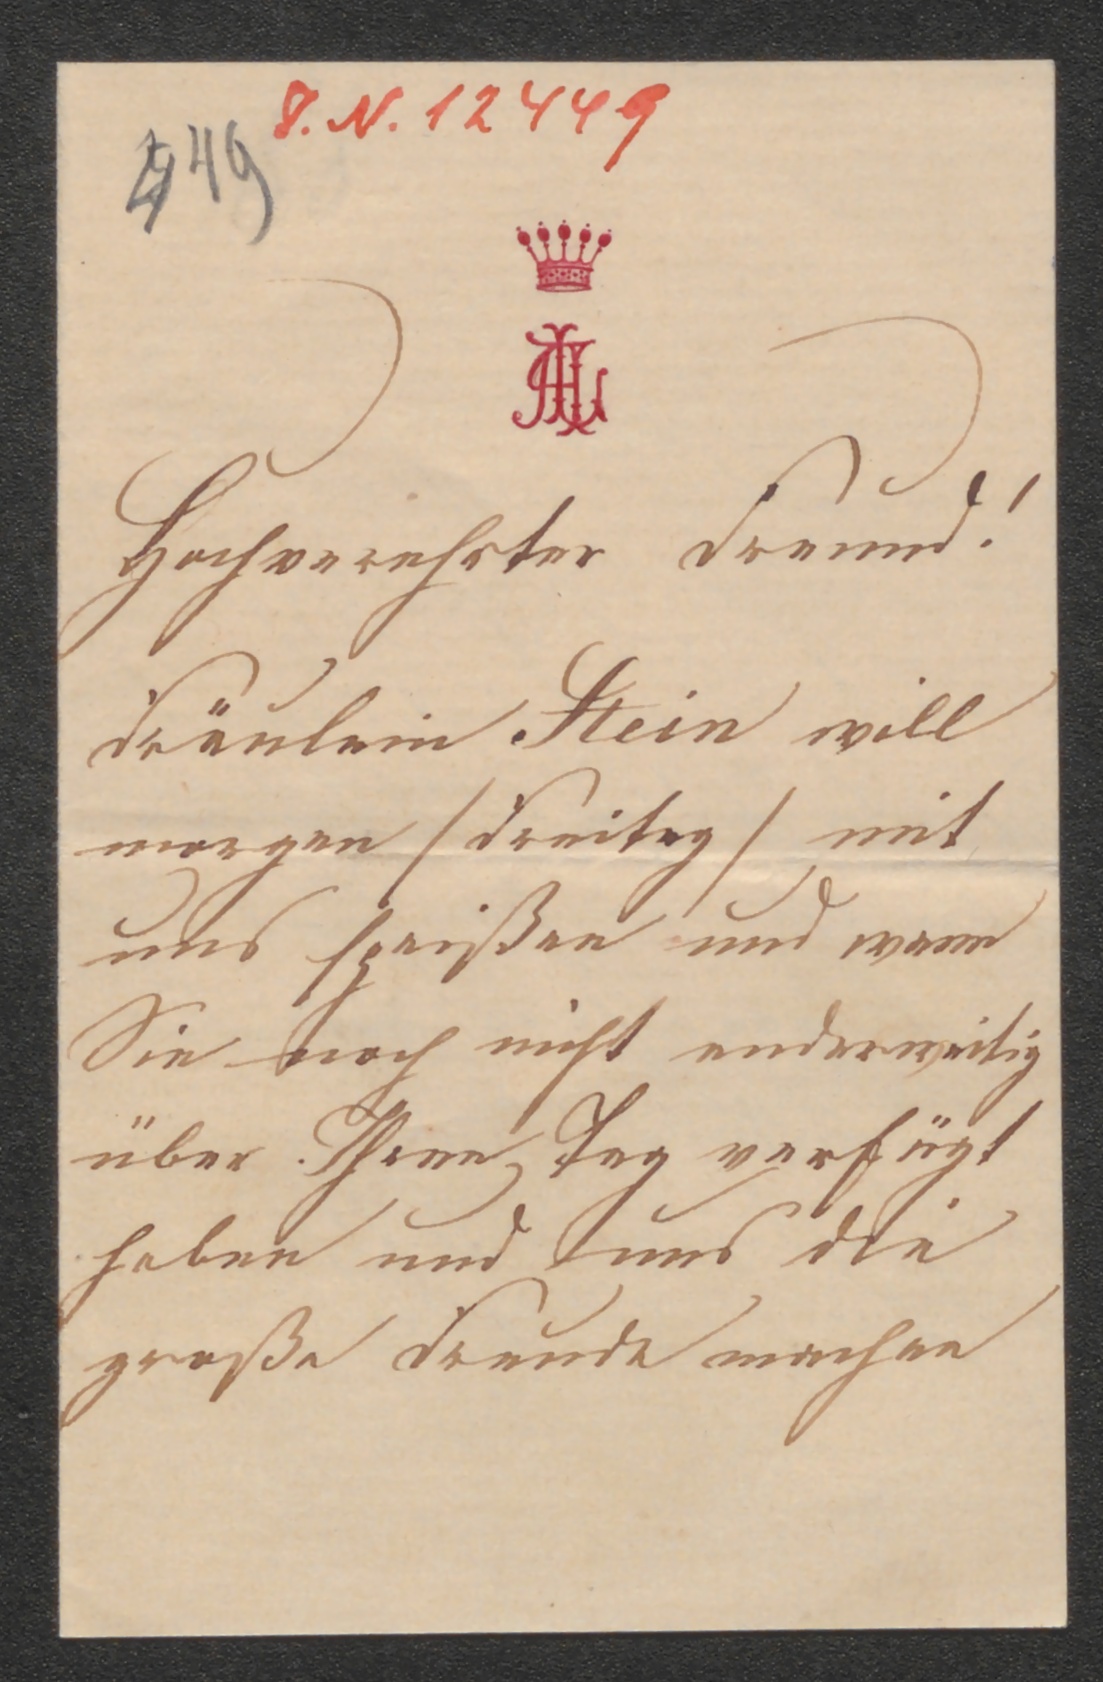 8. N. 12449
49
Hochverehrter Freund!
Fräulein Stein will
morgen /Freitag/ mit
uns speißen und wenn
Sie noch nicht anderweitig
über Ihren Tag verfügt
haben und uns die
große Freude machen